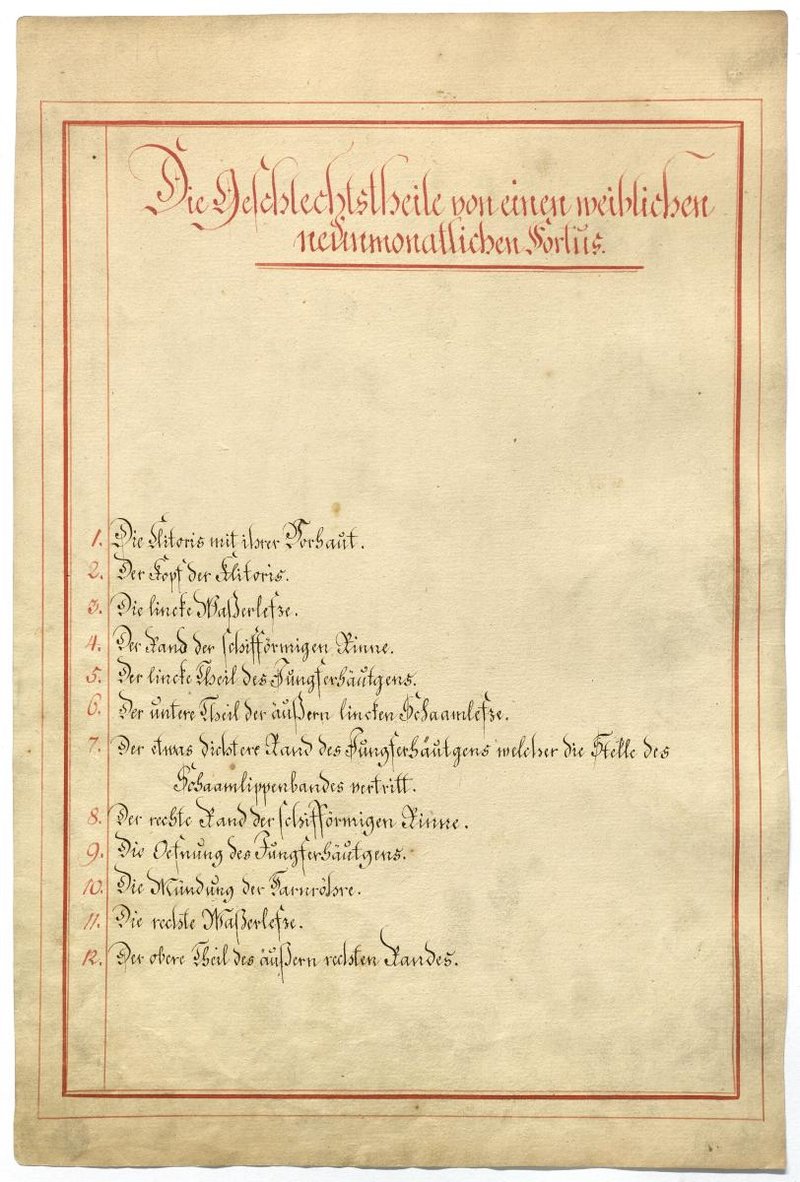 Die Geschlechtstheile von einen weiblichen
neünmonatlichen Foetus.
1. Die Klitoris mit ihrer Vorhaut.
2. Der Kopf der Klitoris.
3. Die lincke Waßerlefze.
4. Der Rand der schifförmigen Rinne.
5. Der lincke Theil des Jungferhäutgens.
6. Der untere Theil der äußern lincken Schaamlefze.
7. Der etwas dichtere Rand des Jungferhäutgens welcher die Stelle des
Schaamlippenbandes vertritt.
8. Der rechte Rand der schifförmigen Rinne.
9. Die Oefnung des Jungferhäutgens.
10. Die Mündung der Harnröhre.
11. Die rechte Waßerlefze.
12. Der obere Theil des äußern rechten Randes.